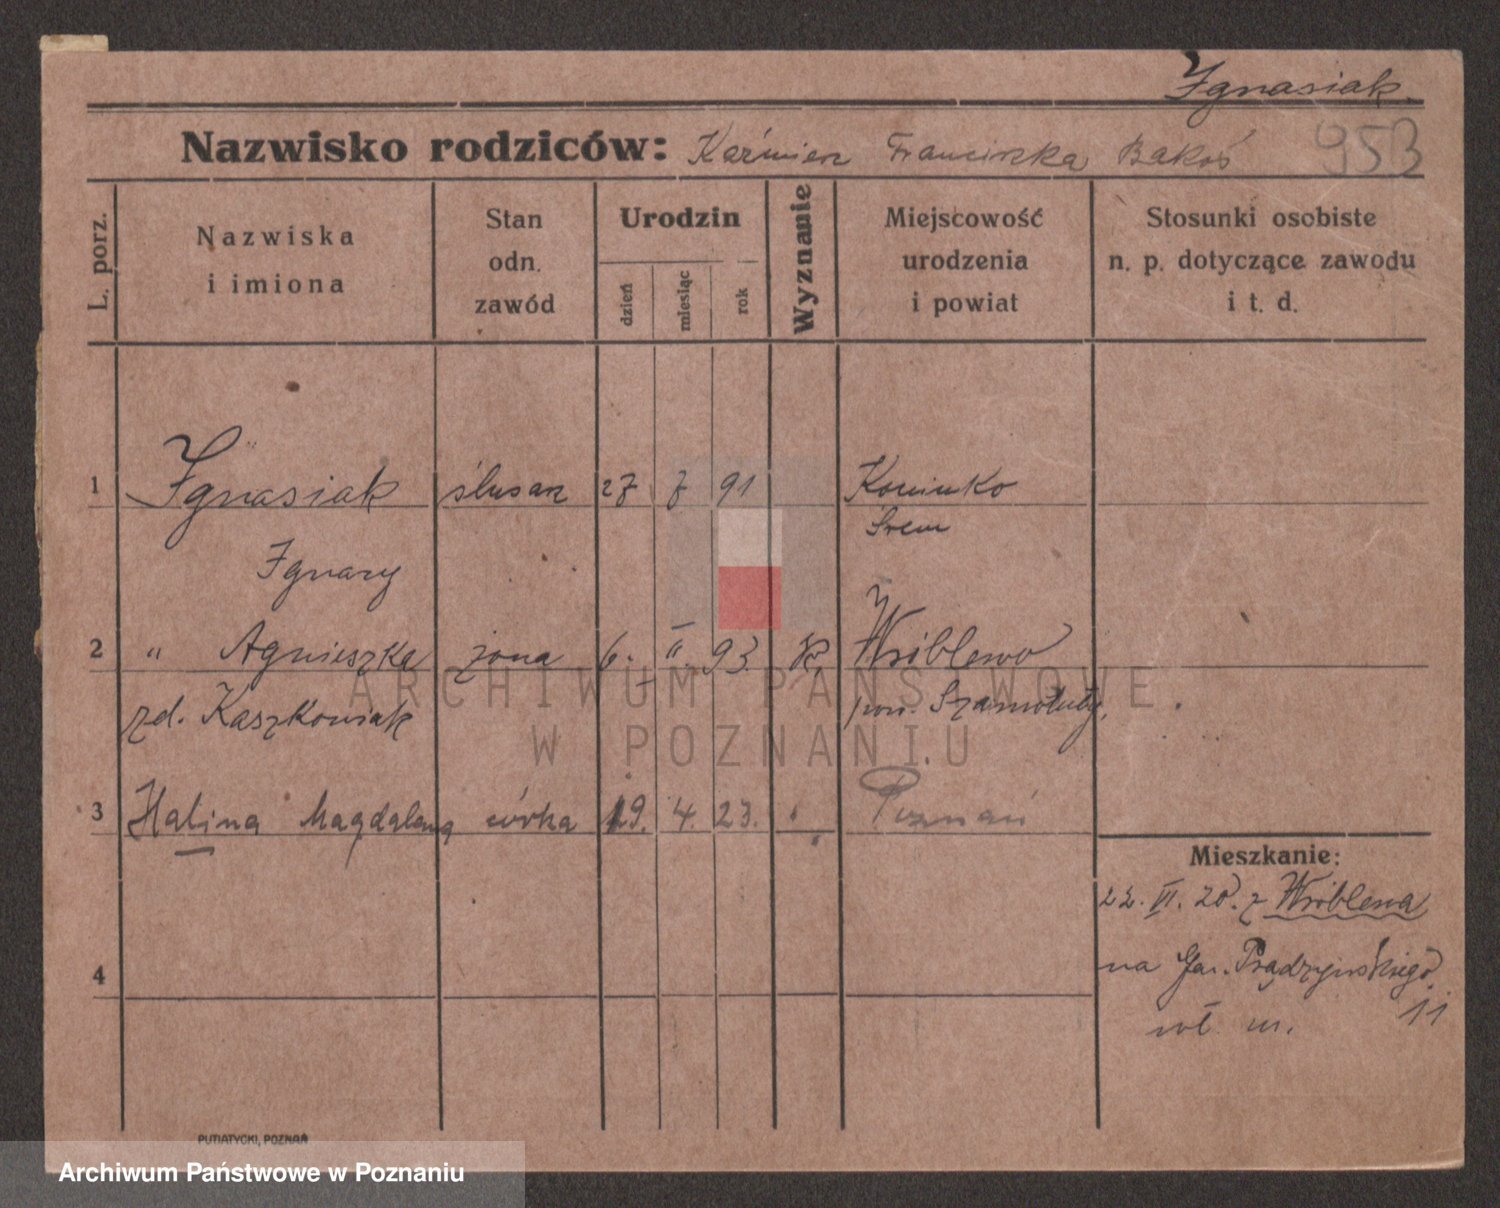 Ignasiak
Nazwisko rodziców: Kaźmierz Franciszka Bakoś 953
L. porz.
Nazwiska
i imiona
Stan
odn.
zawód
Urodzin
dzień
miesiąc
rok
Wyznanie
Miejscowość
urodzenia
i powiat
Stosunki osobiste
n. p. dotyczące zawodu
i t. d.
1 Ignasiak ślusarz 27 7 91 Koninko
Śrem
Ignacy
2 " Agnieszka żona 6. II. 93. K Wróblewo
zd. Kaszkowiak pow. Szamotuły.
3 Halina Magdalena córka 19. 4. 23. Poznań
Mieszkanie:
22. VI. 20. z Wróblewa
4
na Gen. Prądzyńskiego
11
wł. m.
PUTIATYCKI, POZNAŃ
ARCHIWUM PAŃSTWOWE
W POZNANIU
Archiwum Państwowe w Poznaniu